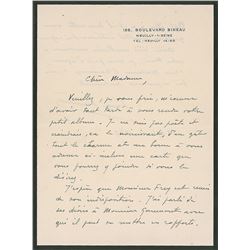 186, BOULEVARD BINEAU
NEUILLY-S-SEINE
Chère Madame,
Veuillez, je vous prie, m'excuser
d'avoir tant tardé à vous rendre votre
petit album. Je ne suis pas poète et
craindrais, en le noircissant, d'en gâter
tout le charme et me borne à vous
adresser ci-inclus une carte que
vous pourrez y joindre si vous le
désirez.
J'espère que Monsieur Frey est remis
de son indisposition. J'ai parlé de
ses désirs à Monsieur Gaumont avec
qui il peut se mettre en rapports.